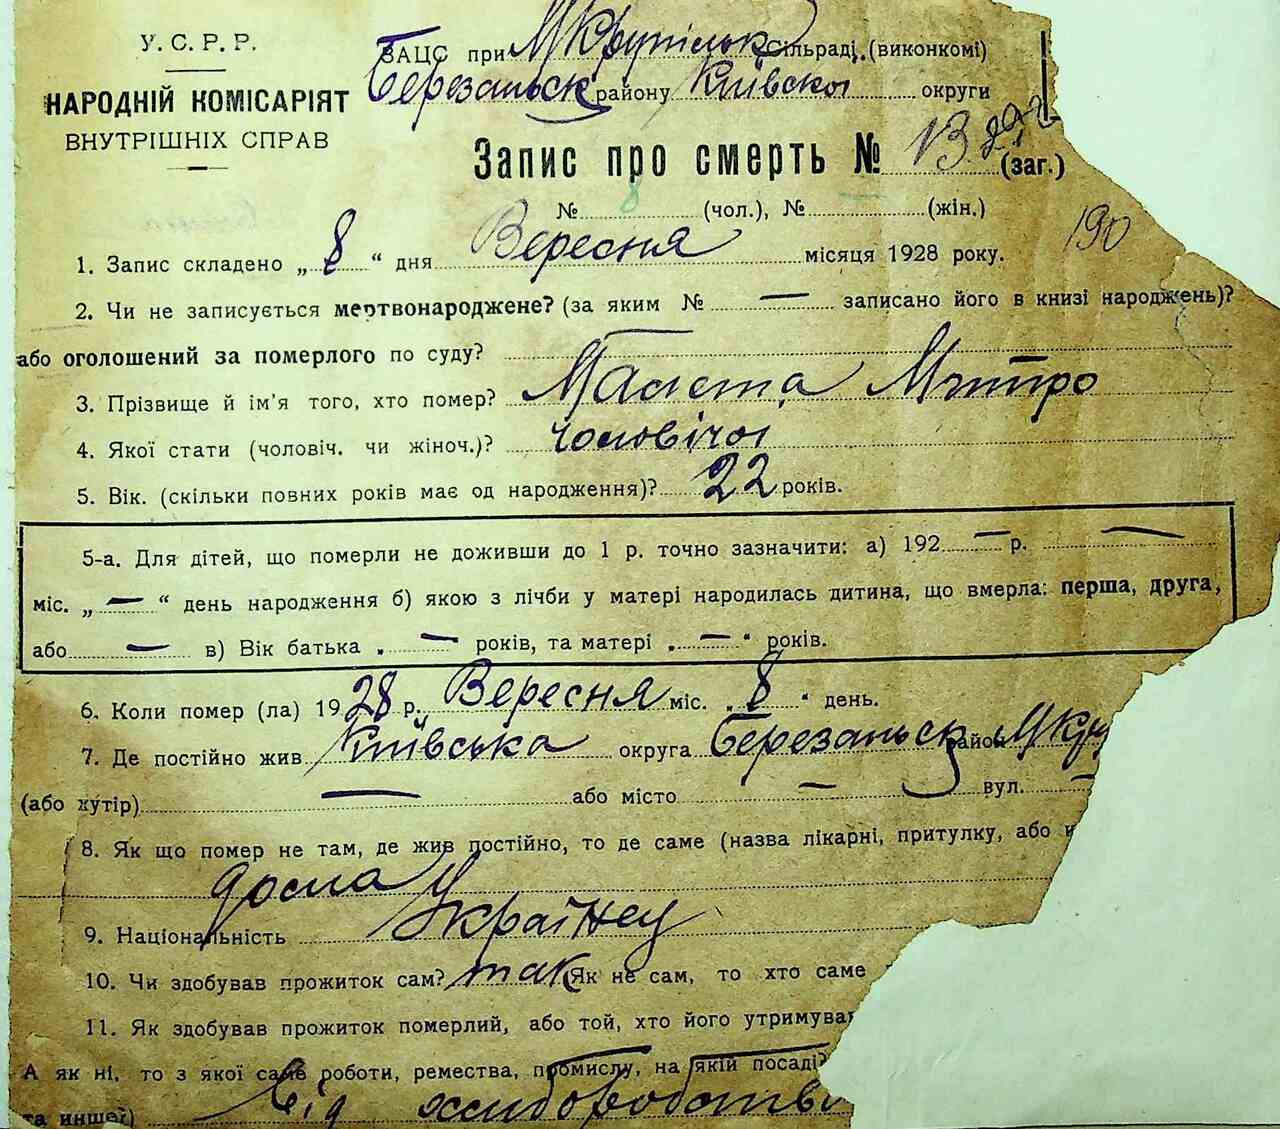 У. С. Р. Р.
НАРОДНІЙ КОМІСАРІЯТ
ВНУТРІШНІХ СПРАВ
ЗАЦС при МКрупільск сільраді, (виконкомі)
Березаньск району Київської округи
Запис про смерть № 13 (заг.)
№ 8 (чол.), № (жін.)
190
1. Запис складено „ 8 “ дня Вересня місяця 1928 року.
2. Чи не записується мертвонароджене? (за яким № — записано його в книзі народжень)?
або оголошений за померлого по суду? —
3. Прізвище й ім'я того, хто помер? Митро
4. Якої стати (чоловіч. чи жіноч.)? чоловічої
5. Вік. (скільки повних років має од народження)? 22 років.
5-а. Для дітей, що померли не доживши до 1 р. точно зазначити: а) 192 — р. —
міс. „ — “ день народження б) якою з лічби у матері народилась дитина, що вмерла: перша, друга,
або — в) Вік батька „ — років, та матері „ — “ років.
6. Коли помер (ла) 1928 р. Вересня міс. „ 8 “ день.
7. Де постійно жив Київська округа Березаньск район МКру
(або хутір) — або місто — вул. —
8. Як що помер не там, де жив постійно, то де саме (назва лікарні, притулку, або и
дома
9. Національність Українец
10. Чи здобував прожиток сам? так Як не сам, то хто саме
11. Як здобував прожиток померлий, або той, хто його утримував
А як ні, то з якої саме роботи, ремества, промислу, на якій посаді?
та иншої) Від хлиборобства